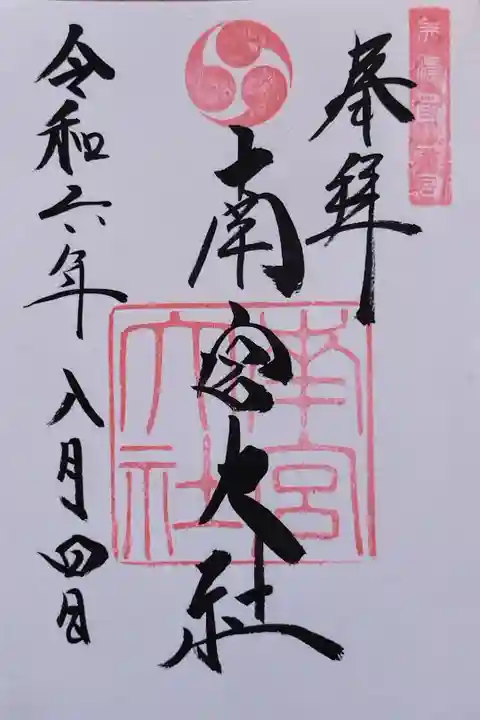 美濃國一宮
奉拝
南宮大社
南宮大社
令和六年八月四日